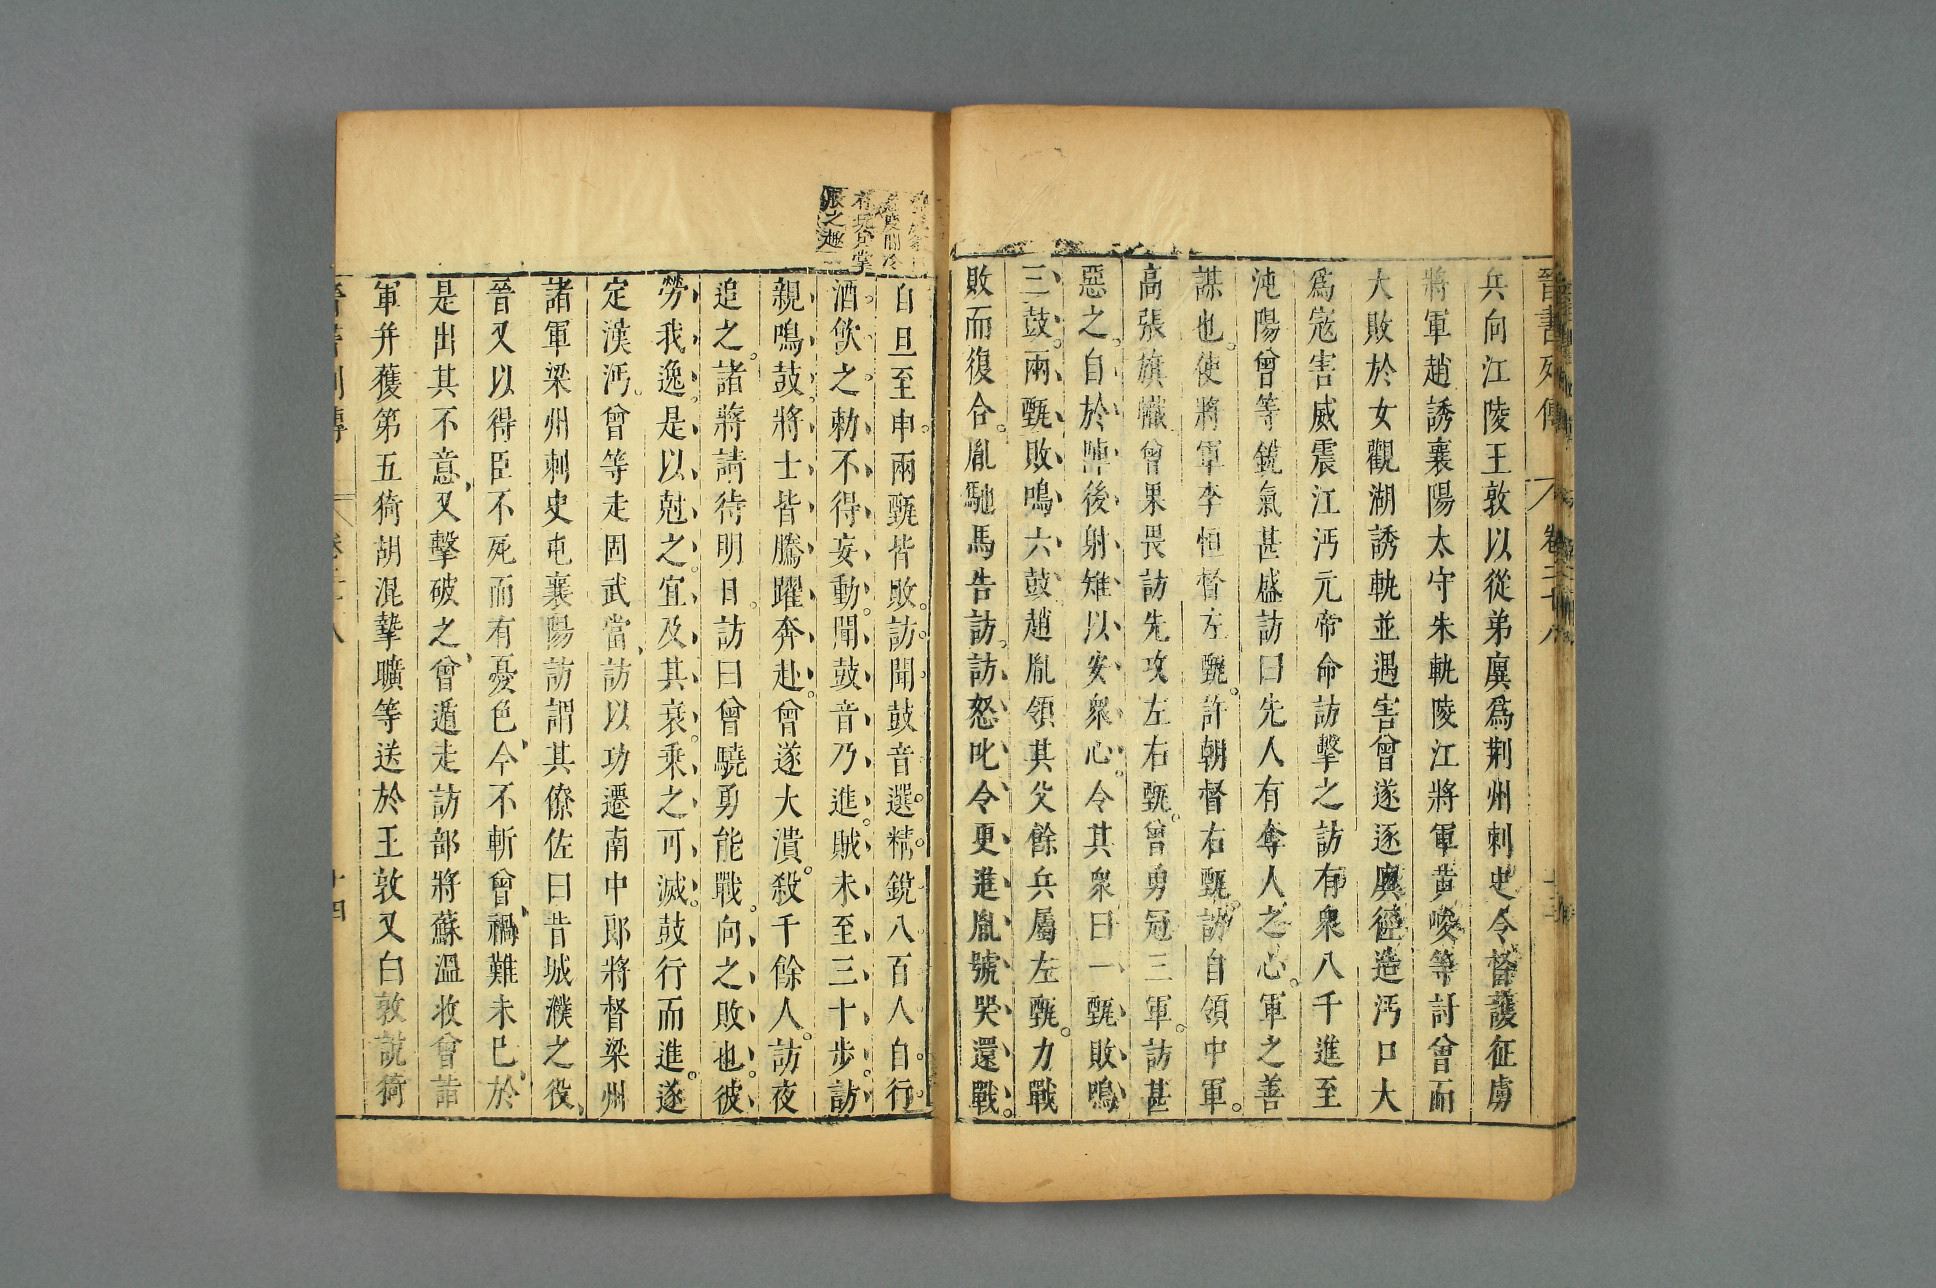 晉書列傳 卷二十八
兵向江陵王敦以從弟廙爲荆州刺史令督護征虜
將軍趙誘襄陽太守朱軌陵江將軍黃峻等討曾而
大敗於女觀湖誘軌並遇害曾遂逐廙徑造沔口大
爲寇害威震江沔元帝命訪擊之訪有衆八千進至
沌陽曾等銳氣甚盛訪曰先人有奪人之心軍之善
謀也使將軍李恒督左甄許朝督右甄訪自領中軍
高張旗幟曾果畏訪先攻左右甄曾勇冠三軍訪甚
惡之自於陣後射雉以安衆心令其衆曰一甄敗鳴
三鼓兩甄敗鳴六鼓趙胤領其父餘兵屬左甄力戰
敗而復合胤馳馬告訪訪怒叱令更進胤號哭還戰
自旦至申兩甄皆敗訪聞鼓音選精銳八百人自行
酒飲之勅不得妄動聞鼓音乃進賊未至三十步訪
親鳴鼓將士皆騰躍奔赴曾遂大潰殺千餘人訪夜
追之諸將請待明日訪曰曾驍勇能戰向之敗也彼
勞我逸是以尅之宜及其衰乘之可滅鼓行而進遂
定漢沔曾等走固武當訪以功遷南中郎將督梁州
諸軍梁州刺史屯襄陽訪謂其僚佐曰昔城濮之役
晉又以得臣不死而有憂色今不斬曾禍難未已於
是出其不意又擊破之曾遁走訪部將蘇溫收曾詣
軍并獲第五猗胡混摯曠等送於王敦又白敦說猗
晉書列傳 卷二十八 十四